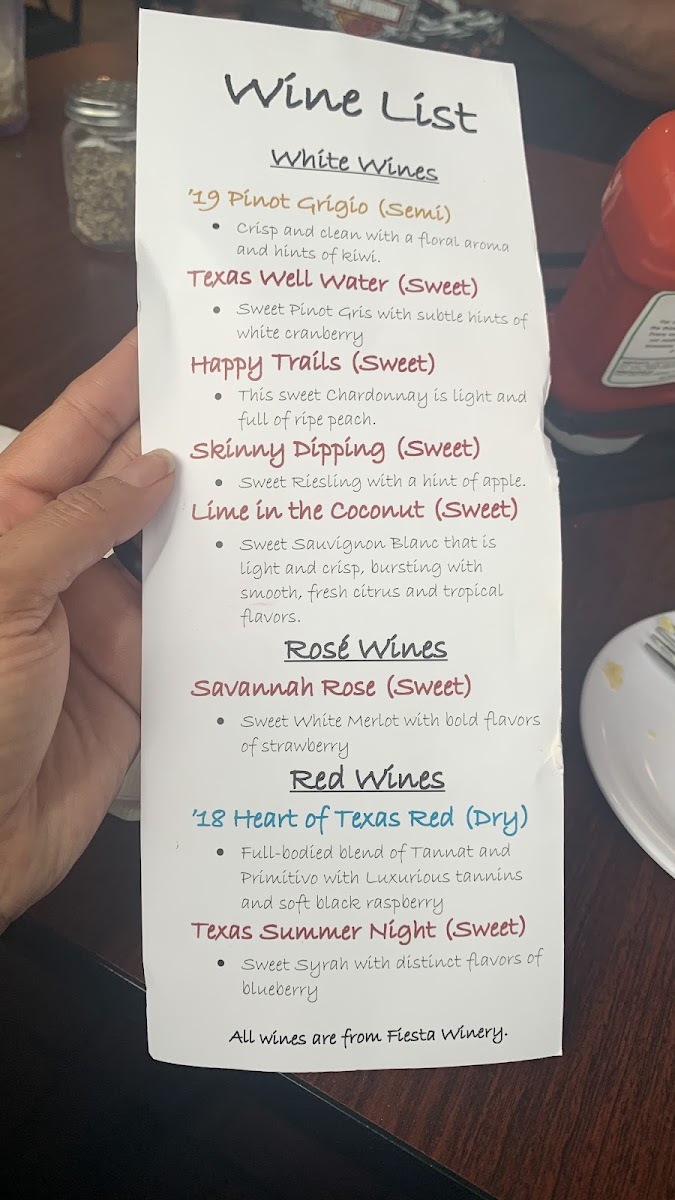 Wine List
White Wines
'19 Pinot Grigio (Semi)
• Crisp and clean with a floral aroma
and hints of kiwi.
Texas Well Water (Sweet)
• Sweet Pinot Gris with subtle hints of
white cranberry
Happy Trails (Sweet)
• This sweet Chardonnay is light and
full of ripe peach.
Skinny Dipping (Sweet)
• Sweet Riesling with a hint of apple.
Lime in the Coconut (Sweet)
• Sweet Sauvignon Blanc that is
light and crisp, bursting with
smooth, fresh citrus and tropical
flavors.
Rosé Wines
Savannah Rose (Sweet)
• Sweet White Merlot with bold flavors
of strawberry
Red Wines
'18 Heart of Texas Red (Dry)
• Full-bodied blend of Tannat and
Primitivo with Luxurious tannins
and soft black raspberry
Texas Summer Night (Sweet)
• Sweet Syrah with distinct flavors of
blueberry
All wines are from Fiesta Winery.